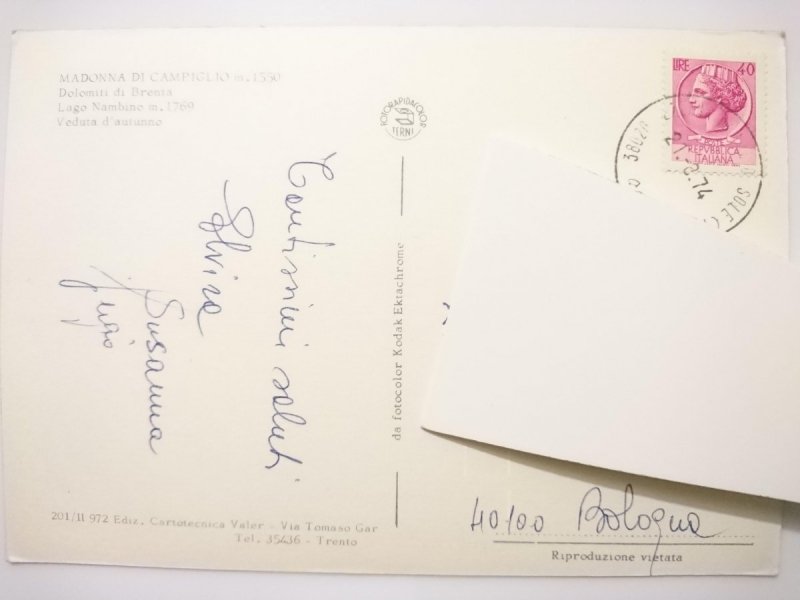 MADONNA DI CAMPIGLIO m. 1550
Dolomiti di Brenta
Lago Nambino m. 1769
Veduta d'autunno
FOTORAPIDACOLOR
TERNI
Tantissimi saluti
Elvira
Susanna
da fotocolor Kodak Ektachrome
LIRE 40
POSTE
REPVBBLICA
ITALIANA
38020
.74
SOLE (
40100 Bologna
201/II 972 Ediz. Cartotecnica Valer - Via Tomaso Gar
Tel. 35436 - Trento
Riproduzione vietata